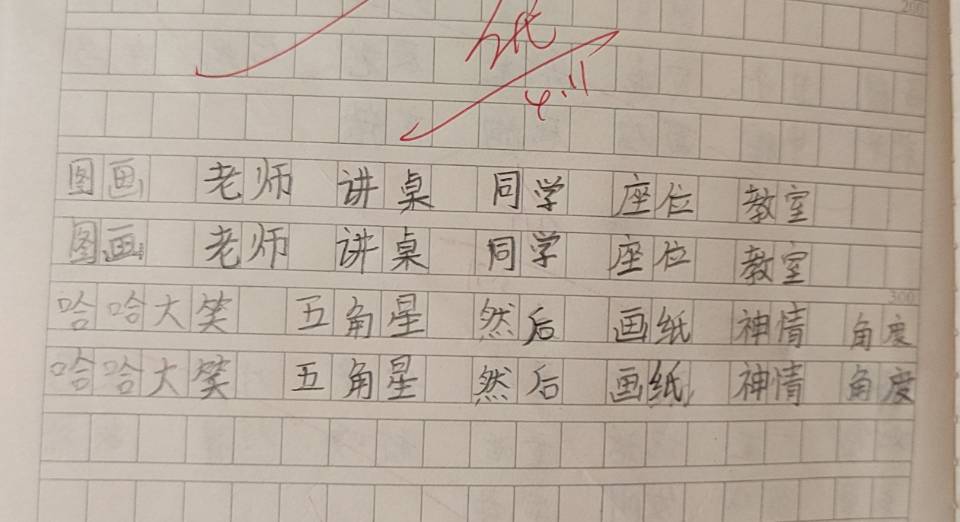 200
4.11
图画 老师 讲桌 同学 座位 教室
图画 老师 讲桌 同学 座位 教室
300
哈哈大笑 五角星 然后 画纸 神情 角度
哈哈大笑 五角星 然后 画纸 神情 角度